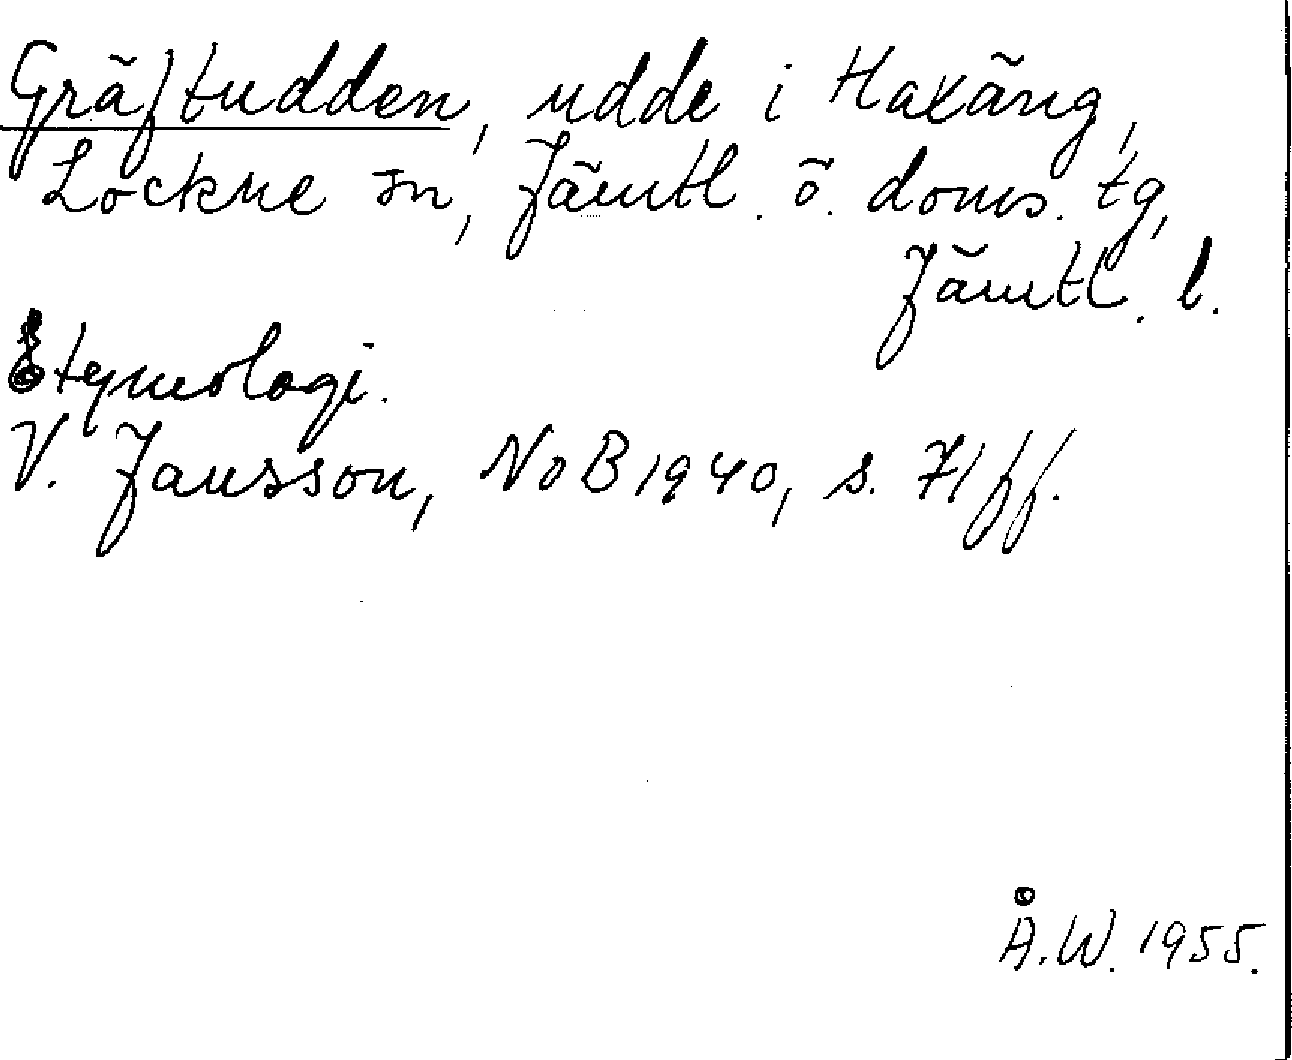 Gräftudden, udde i Haxäng,
Lockne sn, Jämtl. ö. doms. tg,
Jämtl. l.
Etymologi.
V. Jansson, NoB 1940, s. 71 ff.
Å.W. 1955.